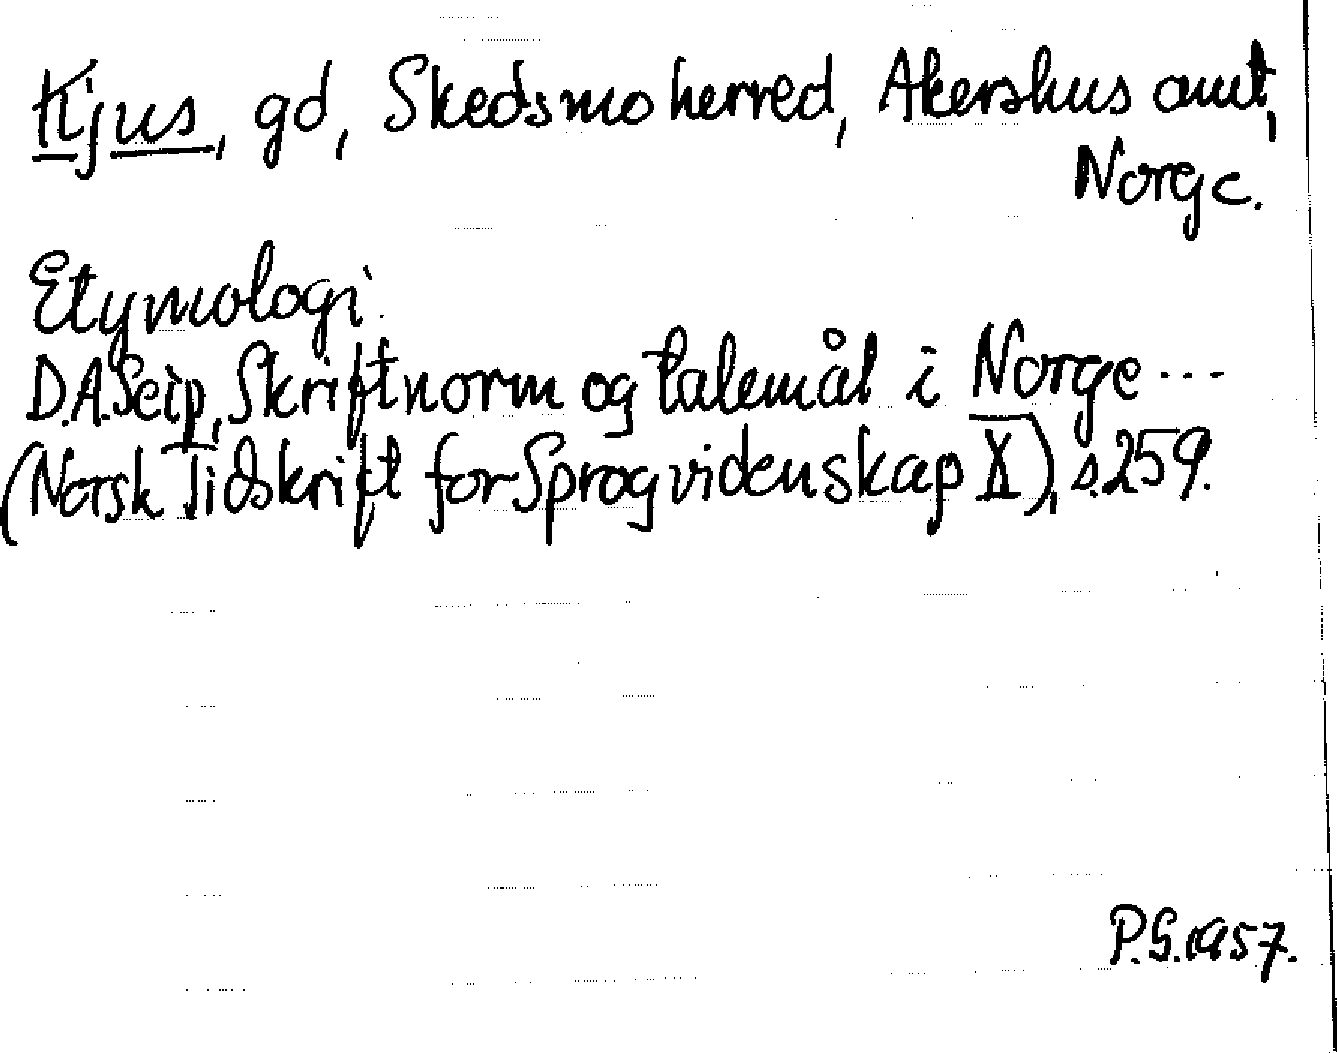 Kjus, gd, Skedsmo herred, Akershus amt,
Norge.
Etymologi.
D.A.Seip, Skriftnorm og talemål i Norge ...
(Norsk Tidskrift for Sprogvidenskap X), s.259.
P.G.1957.